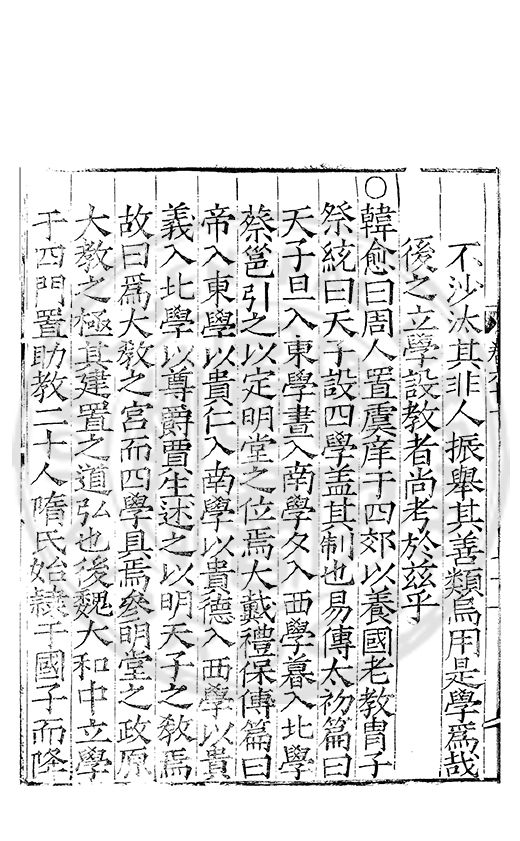 不沙汰其非人振舉其善類烏用是學爲哉
後之立學設教者尚考於茲乎
○韓愈曰周人置虞庠于四郊以養國老教胄子
祭統曰天子設四學盖其制也易傳太初篇曰
天子旦入東學晝入南學夕入西學暮入北學
蔡邕引之以定明堂之位焉大戴禮保傳篇曰
帝入東學以貴仁入南學以貴德入西學以貴
義入北學以尊爵賈生述之以明天子之教焉
故曰爲大教之宮而四學具焉參明堂之政原
大教之極其建置之道弘也後魏大和中立學
于四門置助教二十人隋氏始隸于國子而降